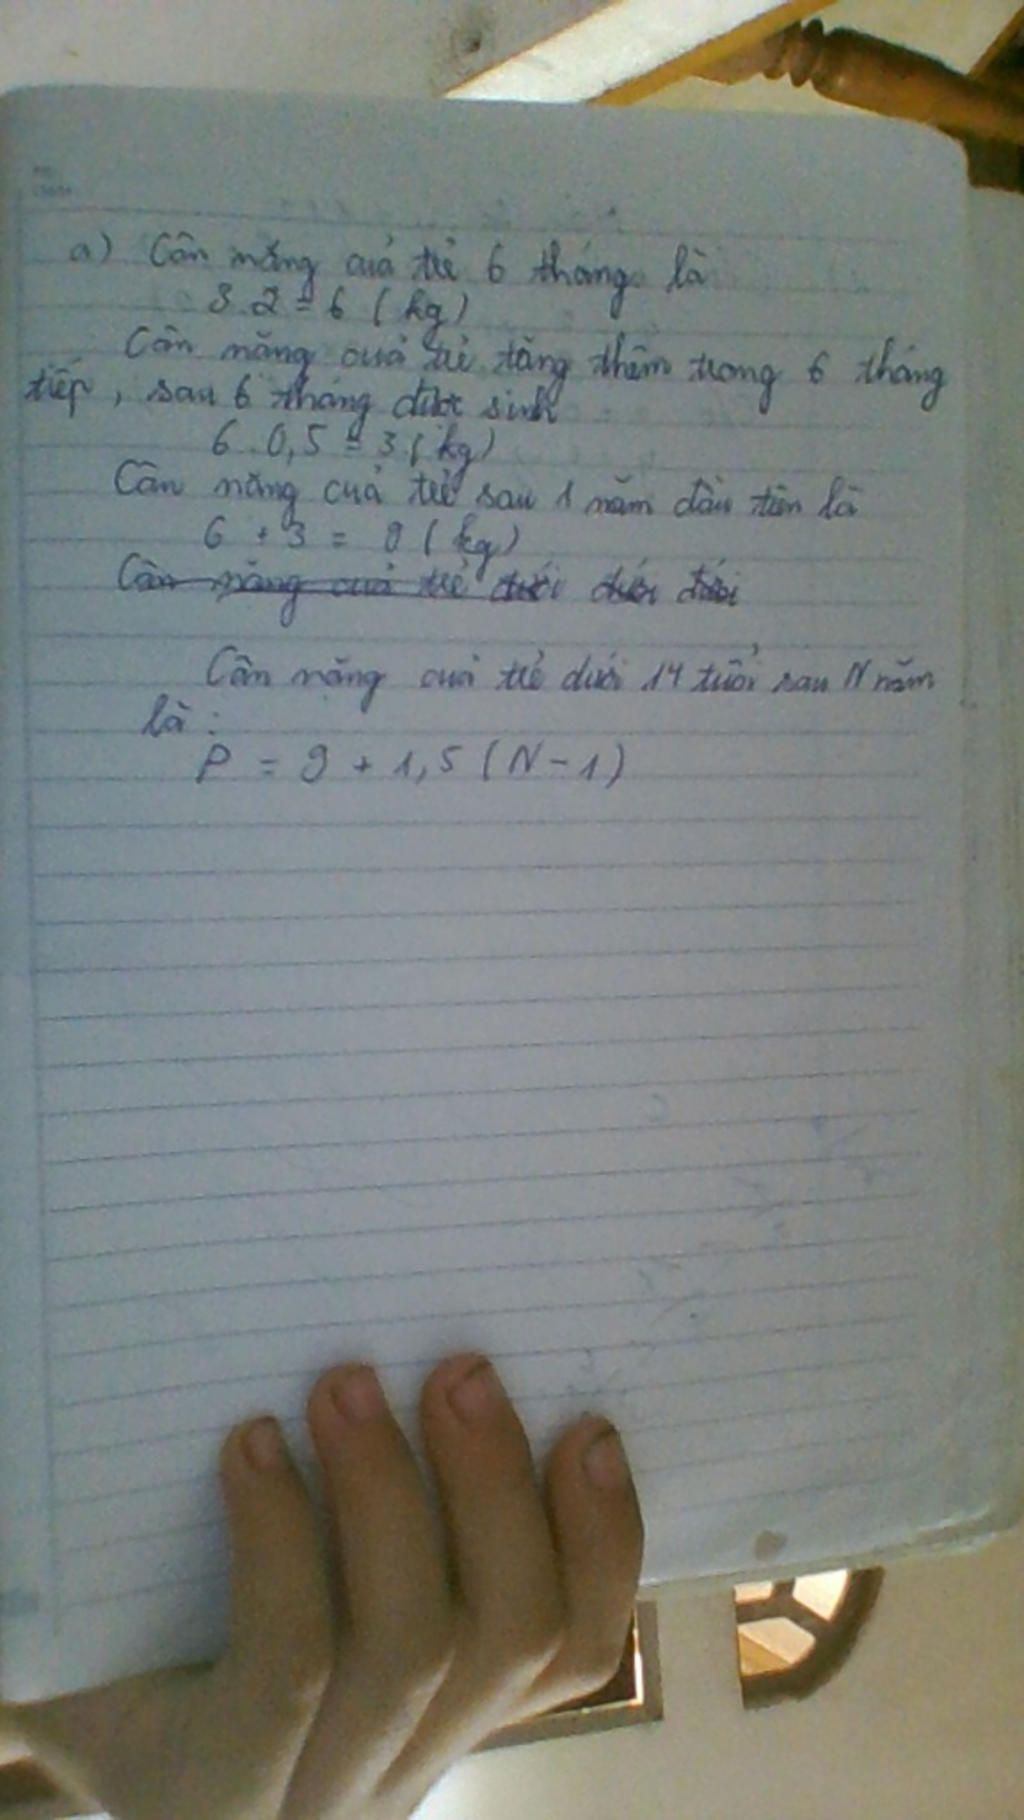 a) Cân nặng của trẻ 6 tháng là
3.2 = 6 (kg)
Cân nặng của trẻ tăng thêm trong 6 tháng
tiếp, sau 6 tháng được sinh
6.0,5 = 3 (kg)
Cân nặng của trẻ sau 1 năm đầu tiên là
6 + 3 = 9 (kg)
Cân nặng của trẻ dưới dưới dưới
Cân nặng của trẻ dưới 14 tuổi sau N năm
là :
P = 9 + 1,5 (N - 1)